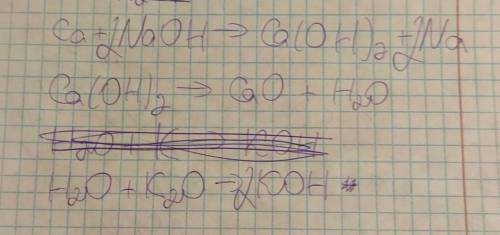 Ca+2NaOH→Ca(OH)₂+2Na
Ca(OH)₂→CaO + H₂O
H₂O + K₂O→2KOH